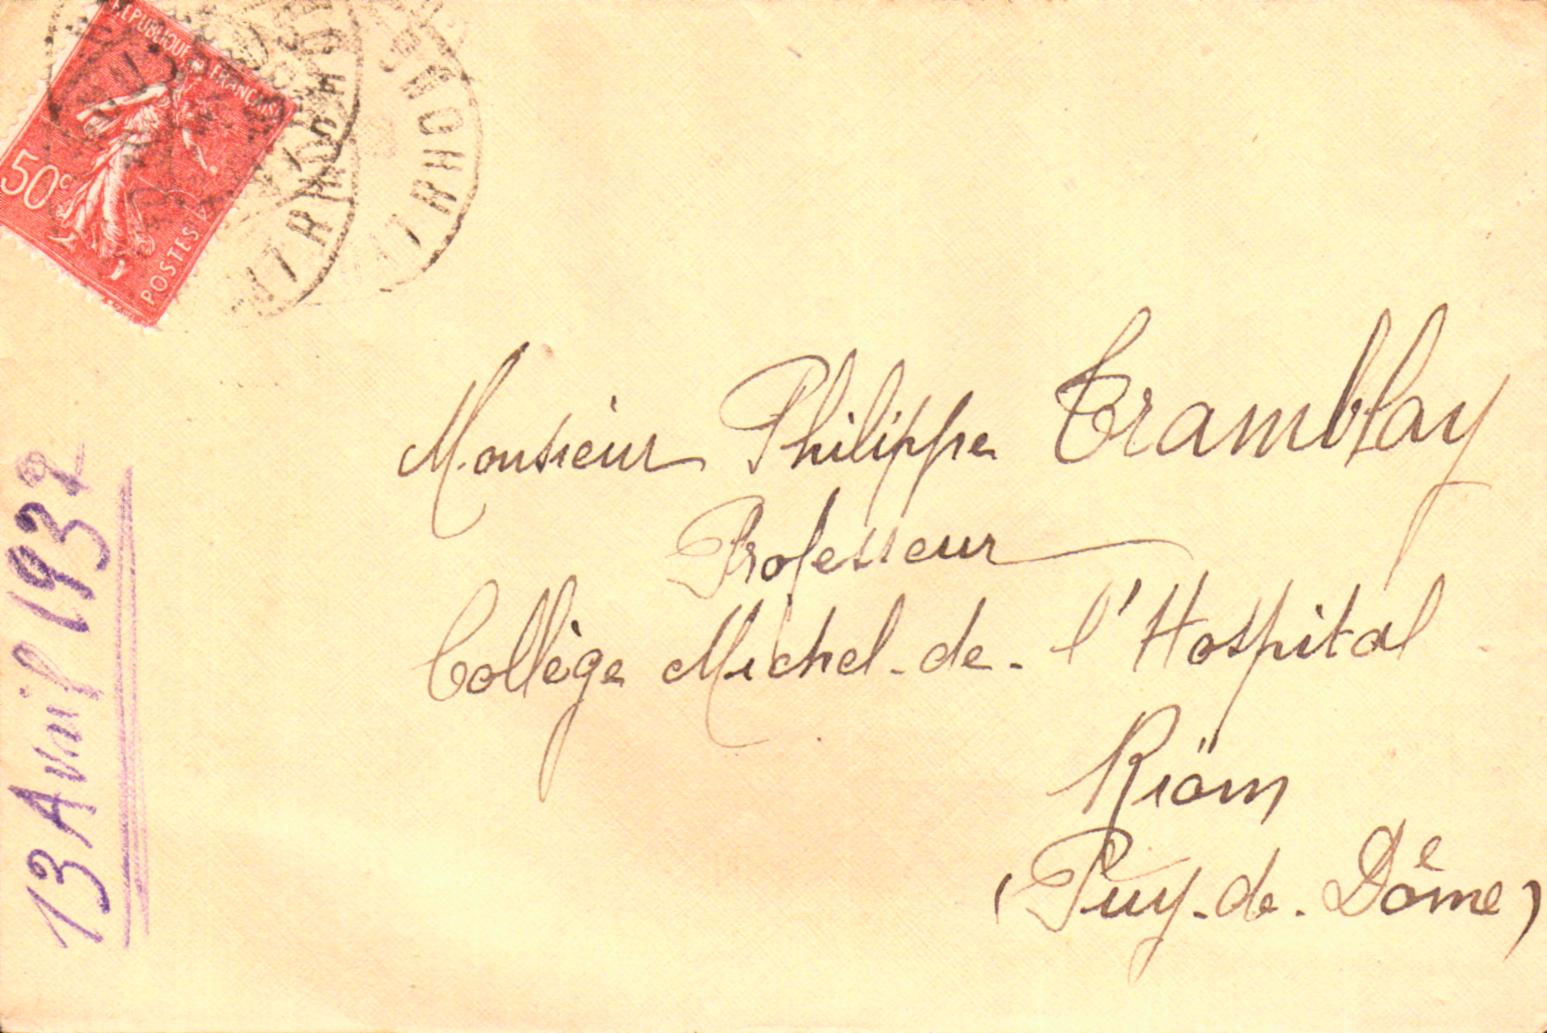 RÉPUBLIQUE FRANÇAISE
50c
POSTES
RHONE
Monsieur Philippe Tramblay
Professeur
Collège Michel-de-l'Hospital
Riom
(Puy-de-Dôme)
13 Avril 1932